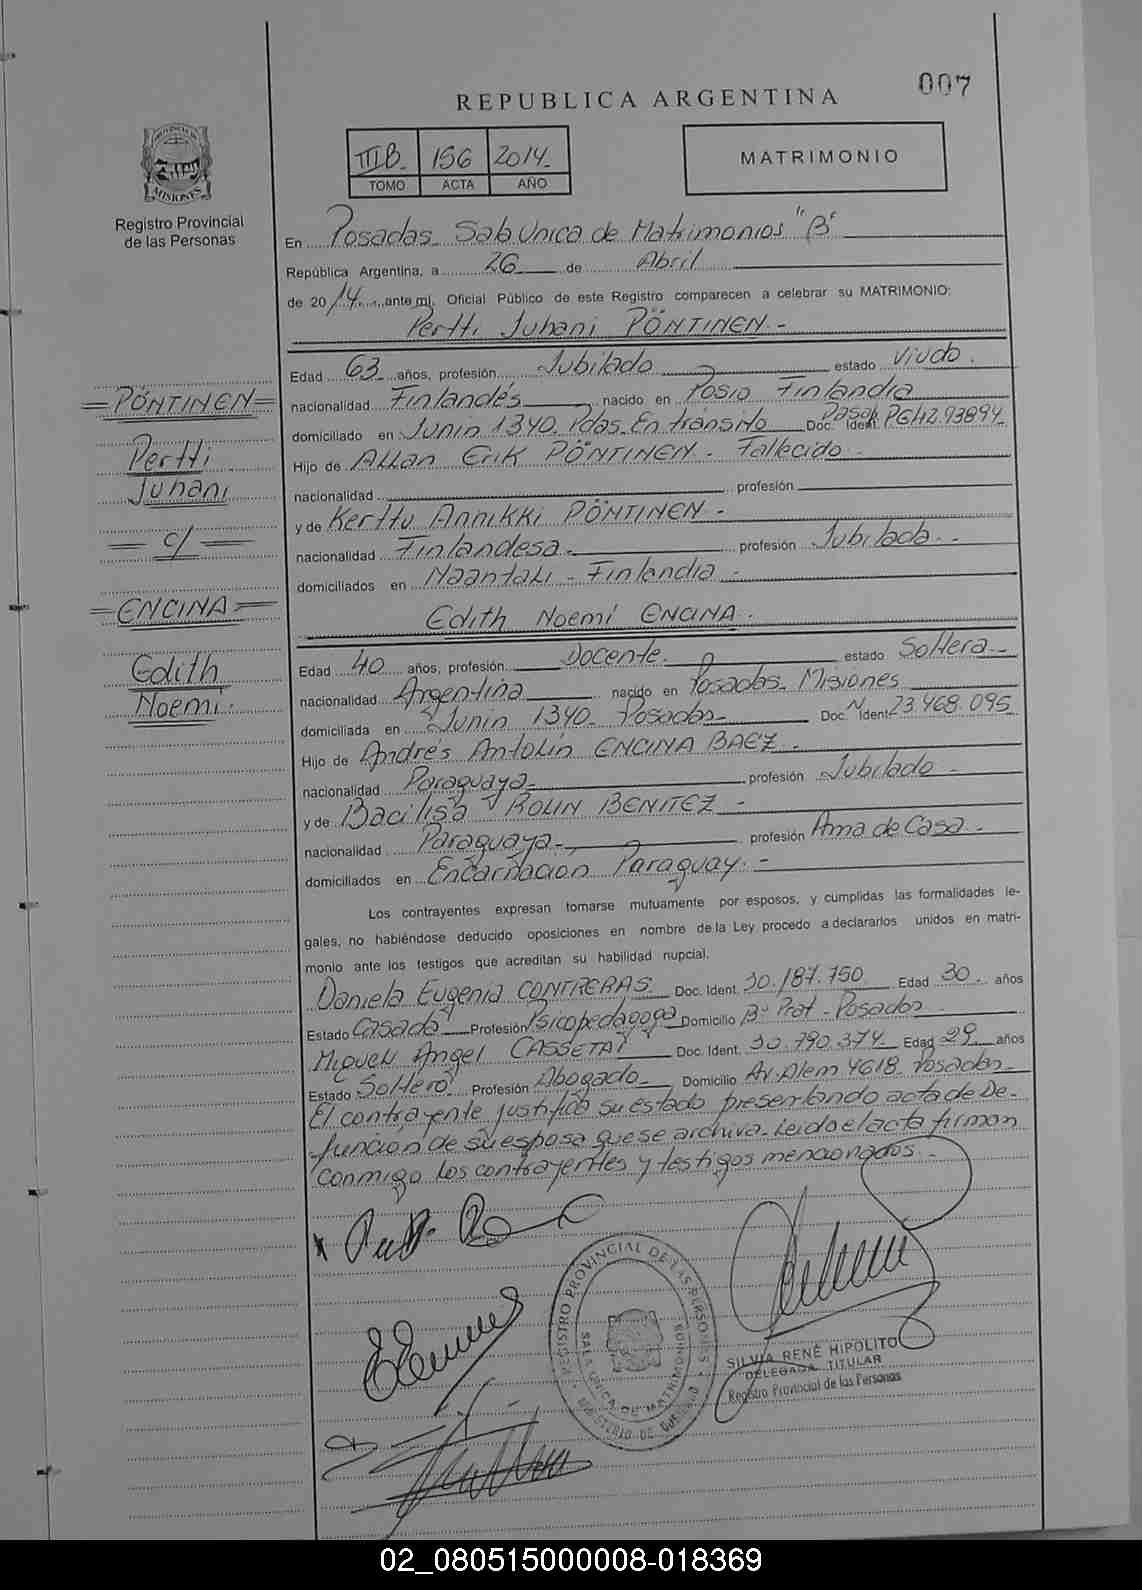 007
REPUBLICA ARGENTINA
PROVINCIA DE
MISIONES
Registro Provincial
de las Personas
III B. 156 2014.
TOMO ACTA AÑO
MATRIMONIO
En Posadas Sala Unica de Matrimonios "B"
República Argentina, a 26 de Abril
de 2014, ante mi, Oficial Público de este Registro comparecen a celebrar su MATRIMONIO:
Pertti Juhani PÖNTINEN.-
Edad 63 años, profesión Jubilado estado Viudo.
nacionalidad Finlandés nacido en Posio Finlandia
domiciliado en Junin 1340 Pdas. En tránsito Doc. Ident. Pasap. PG4293894
Hijo de Allan Erik PÖNTINEN. Fallecido.
nacionalidad profesión
y de Kerttu Annikki PÖNTINEN.
nacionalidad Finlandesa.- profesión Jubilada.-
domiciliados en Naantali - Finlandia.-
=PÖNTINEN=
Pertti
Juhani
= c/ =
=ENCINA=
Edith
Noemí.
Edith Noemí ENCINA.
Edad 40 años, profesión Docente. estado Soltera.-
nacionalidad Argentina nacido en Posadas. Misiones
domiciliada en Junin 1340 Posadas- Doc. Ident. N° 23.468.095
Hijo de Andrés Antolín ENCINA BAEZ.
nacionalidad Paraguaya- profesión Jubilado.-
y de Bacilisa ROLIN BENITEZ-
nacionalidad Paraguaya- profesión Ama de Casa.-
domiciliados en Encarnación Paraguay.-
Los contrayentes expresan tomarse mutuamente por esposos, y cumplidas las formalidades le-
gales, no habiéndose deducido oposiciones en nombre de la Ley procedo a declararlos unidos en matri-
monio ante los testigos que acreditan su habilidad nupcial.
Daniela Eugenia CONTRERAS Doc. Ident. 30.187.750 Edad 30. años
Estado Casada Profesión Psicopedagoga Domicilio B° Prat - Posadas
Miguel Angel CASSETAI Doc. Ident. 30.790.374 Edad 29 años
Estado Soltero Profesión Abogado- Domicilio Av. Alem 4618 Posadas-
El contrayente justifica su estado presentando acta de De-
función de su esposa que se archiva. Leido el acta firman
conmigo los contrayentes y testigos mencionados.-
REGISTRO PROVINCIAL DE LAS PERSONAS
SALA UNICA DE MATRIMONIOS
MINISTERIO DE GOBIERNO
SILVIA RENÉ HIPOLITO
DELEGADA TITULAR
Registro Provincial de las Personas
02_080515000008-018369